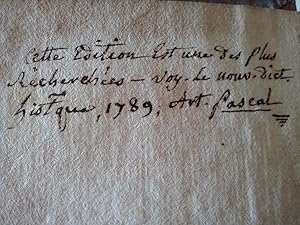 Cette Edition Est une des plus
Recherchées — voy. Le nouv. dict.
histque, 1789, Art. Pascal